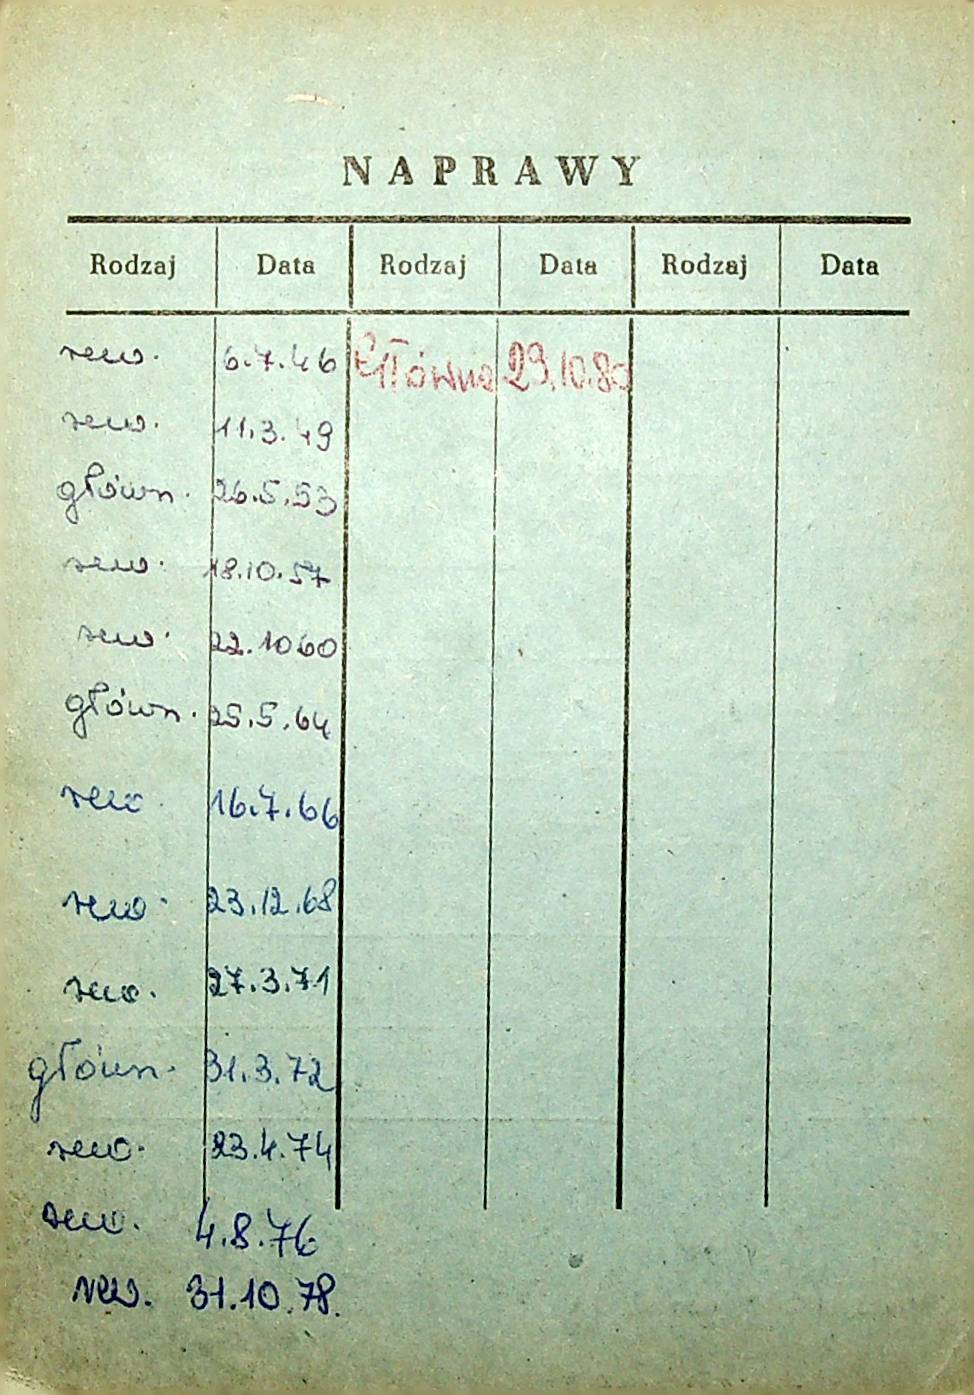 NAPRAWY
Rodzaj Data Rodzaj Data Rodzaj Data
rew. 6.7.46 Główna 29.10.80
rew. 11.3.49
główn. 26.5.53
rew. 18.10.57
rew. 22.10 60
główn. 25.5.64
rew. 16.7.66
rew. 23.12.68
rew. 27.3.71
główn. 31.3.72
rew. 23.4.74
rew. 4.8.76
rew. 31.10.78.